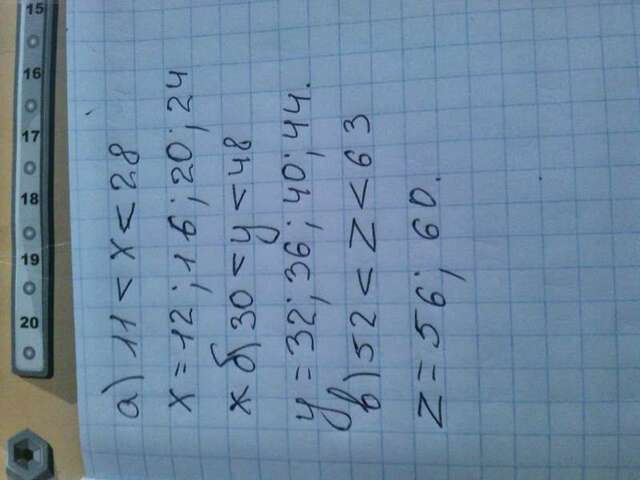 а) 11 < x < 28
x = 12; 16; 20; 24
x б) 30 < y < 48
y = 32; 36; 40; 44.
в) 52 < z < 63
z = 56; 60.
15
16
17
18
19
20